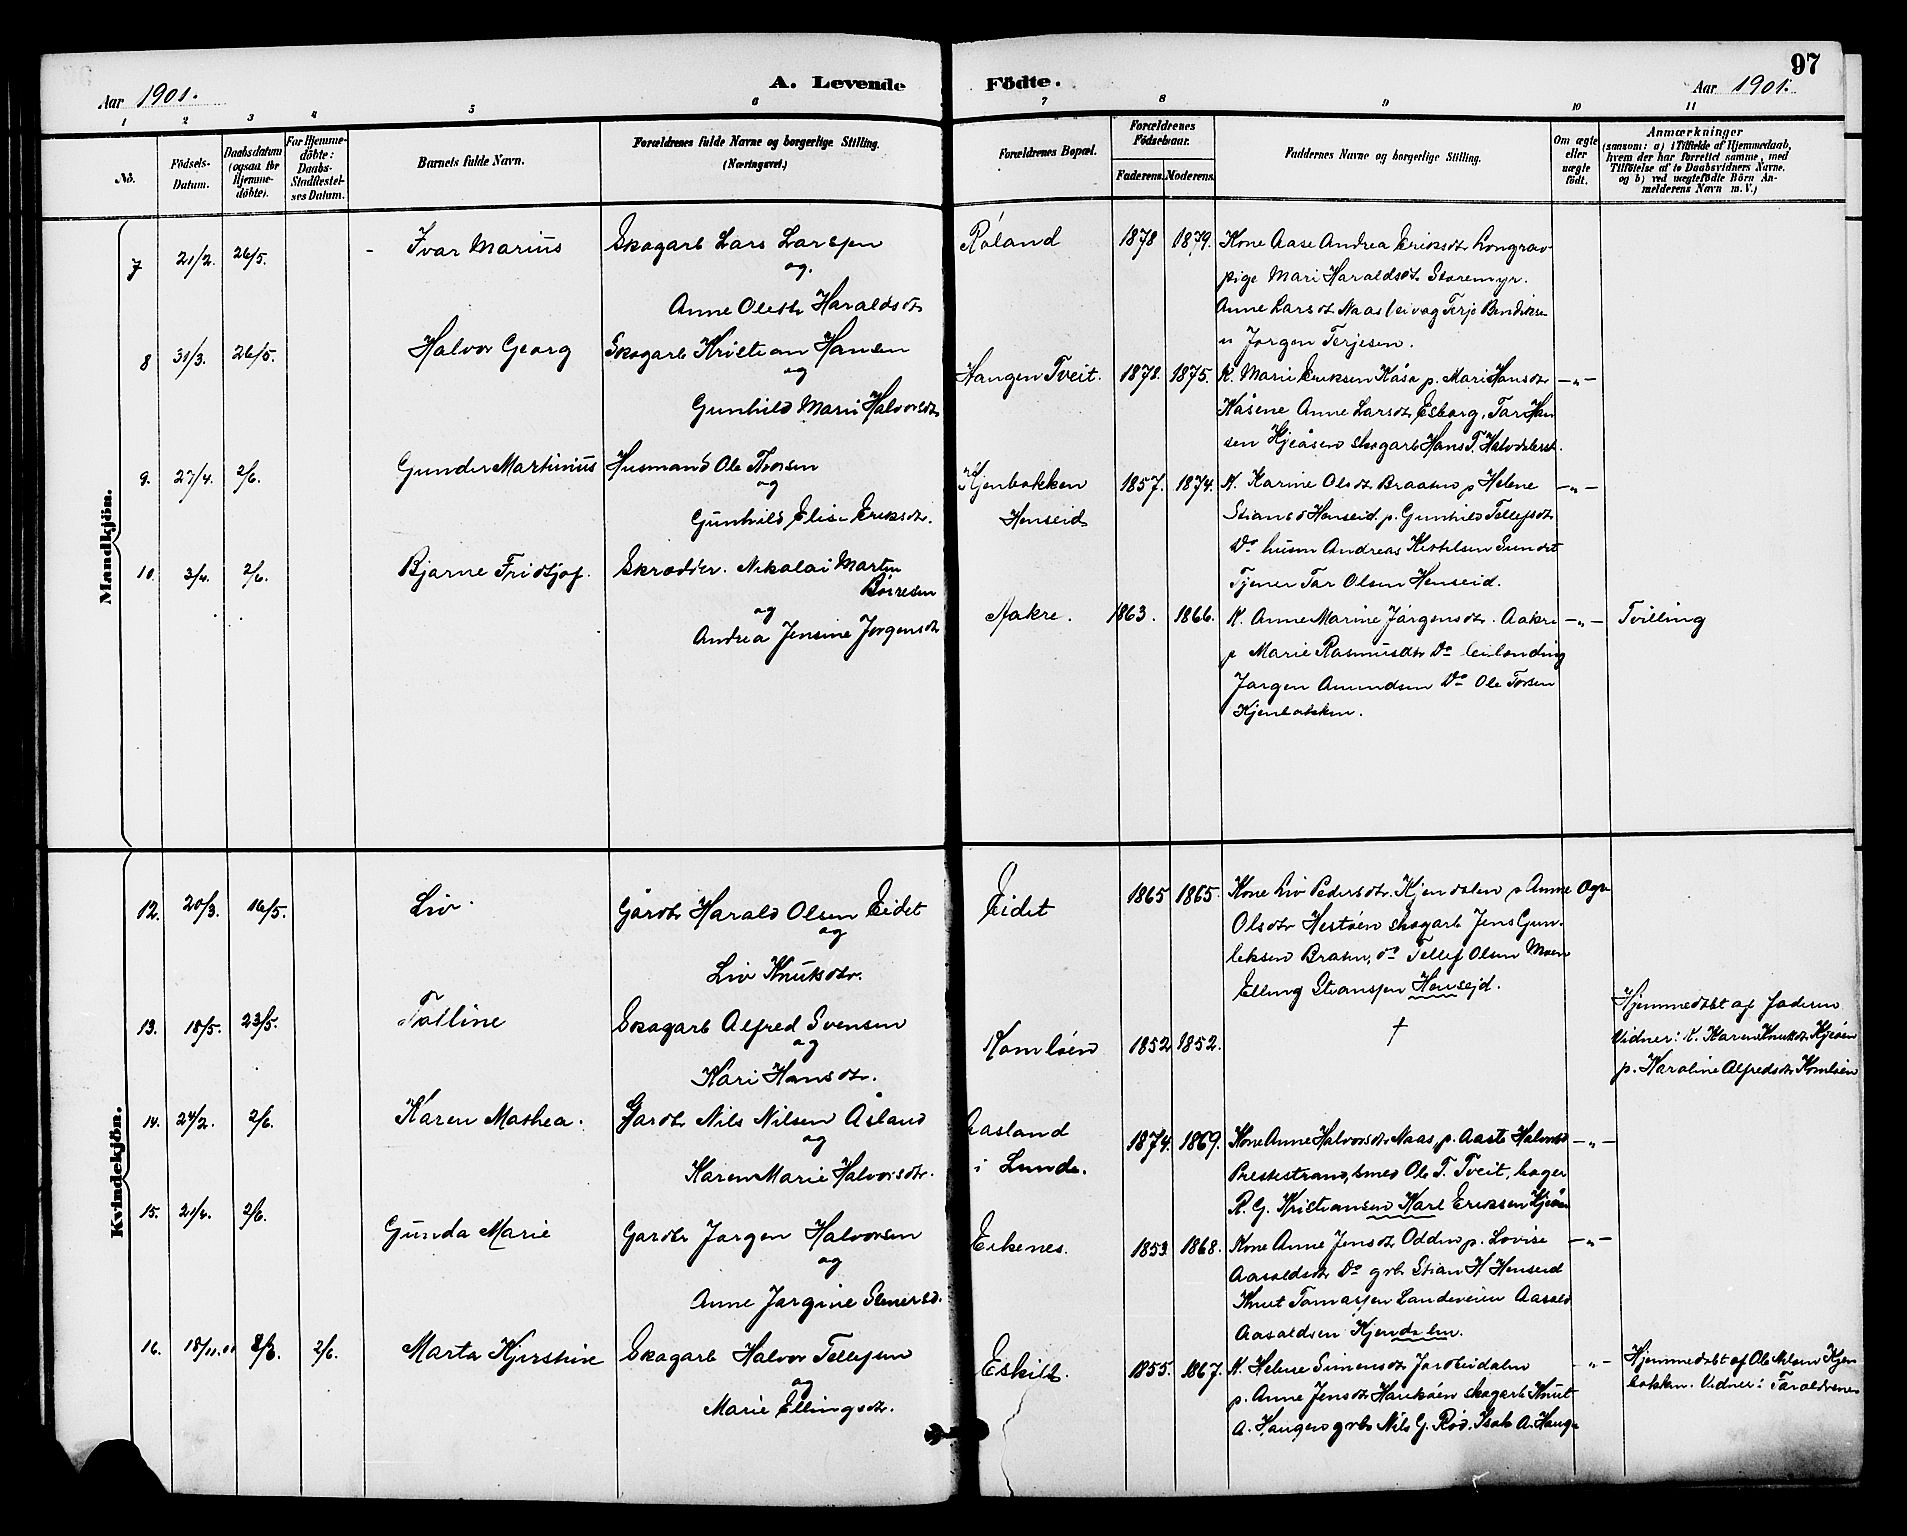 97
Aar 1901.
A. Levende Födte.
Aar 1901.
1 2 3 4 5 6 7 8 9 10 11
No.
Födsels-Datum.
Daabsdatum (ogsaa for Hjemme-döbte).
For Hjemme-döbte: Daabs-Stadfæstelses Datum.
Barnets fulde Navn.
Forældrenes fulde Navne og borgerlige Stilling.
(Næringsvei.)
Forældrenes Bopæl.
Forældrenes Födselsaar.
Faderens. Moderens.
Faddernes Navne og borgerlige Stilling.
Om ægte eller uægte födt.
Anmærkninger
(saasom: a) i Tilfælde af Hjemmedaab, hvem der har forrettet samme, med Tilföielse af to Daabsvidners Navne, og b) ved uægtefödte Börn Anmelderens Navn m. V.)
Mandkjön.
7 21/2. 26/5. Ivar Marius Skogarb Lars Larsen
og
Anne Oleth Haraldsdtr
Röland 1878 1879. Kone Aase Andrea Eriksdtr
pige Mari Haraldsdtr Storemyr.
Anne Larsdtr Naas Terje Bendiksen
Jorgen Terjesen.
8 31/3. 26/5. Halvor Georg Skogarb Kristian Hansen
og
Gunhild Marie Halvorsdtr
Haugen Tveit. 1878. 1875. K. Marie Eriksen Kåsa p. Mari Hansdtr -"-
Kåsene Anne Larsdtr Esborg, Tar Han
sen Kjeåsen skogarb Hans T.
9. 27/4. 2/6. Gunder Martinius Husmand Ole Thorsen
og
Gunhild Elise Eriksdtr.
Kjenbakken
Henseid
1857. 1874. K. Karine Olsdtr Braaten p Helene -"-
Stiansd Henseid. p. Gunhild Tellefsdtr
Do husm Andreas Kittilsen Sundet
Tjener Tar Olsen Henseid.
10. 3/4. 2/6. Bjarne Fridtjof. Skrædder. Nikolai Martin
Börresen
og
Andrea Jensine Jorgensdtr
Aakre. 1863. 1866. K. Anne Marine Jörgensdtr. Aakre -"- Tvilling
p Marie Rasmusdtr Do leilending
Jorgen Amundsen Do Ole Torsen
Kjenbakken.
Kvindekjön.
12. 20/3. 16/5. Liv. Gårdbr Harald Olsen Eidet
og
Liv Knutsdtr.
Eidet 1865 1865. Kone Liv Pedersdtr. Kjendalen p Anne
Olsdtr Hestöen skogarb Jens Gun-
leksen Braten, do Tellef Olsen Moen
Elling Stiansen Henseid.
13. 18/5. 23/5. Talline Skogarb Alfred Svensen
og
Kari Hansdtr.
Komlöen 1852 1852. †
Hjemmedöbt af Faderen
Vidner: K. Karen Knutsdtr Kjeöen
p. Karoline Alfredsdtr Komlöen
14. 24/2. 2/6. Karen Mathea. Gardbr Nils Nilsen Åsland
og
Karen Marie Halvorsdtr.
Aasland
i Lunde.
1874. 1869. Kone Anne Halvorsdtr Naas, p. Aaste Halvorsd -"-
Prestestrand, smed Ole T. Tveit, bager
R. G. Kristiansen Karl Eriksen
15. 21/4. 2/6. Gunda Marie Gardbr Jorgen Halvorsen
og
Anne Jorgine
Eikenes. 1853 1868. Kone Anne Jensdtr Odden p. Lovise -"-
Aasoldsdtr Do grb Stian H Henseid
Knut Tomassen Landeveien Aasold
Aasoldsen Kjendalen.
16. 18/11.00 2/6. Marta Kjirstine Skogarb Halvor Tellefsen
og
Marie Ellingsdtr.
Eskilt. 1855. 1867. K. Helene Simensdtr -"-
p. Anne Jensdtr skogarb Knut
A. Haugen grb Nils G. Röd, Isak A. Hauge
Hjemmedöbt af Ole Nilsen Kjen
bakken. Vidner: